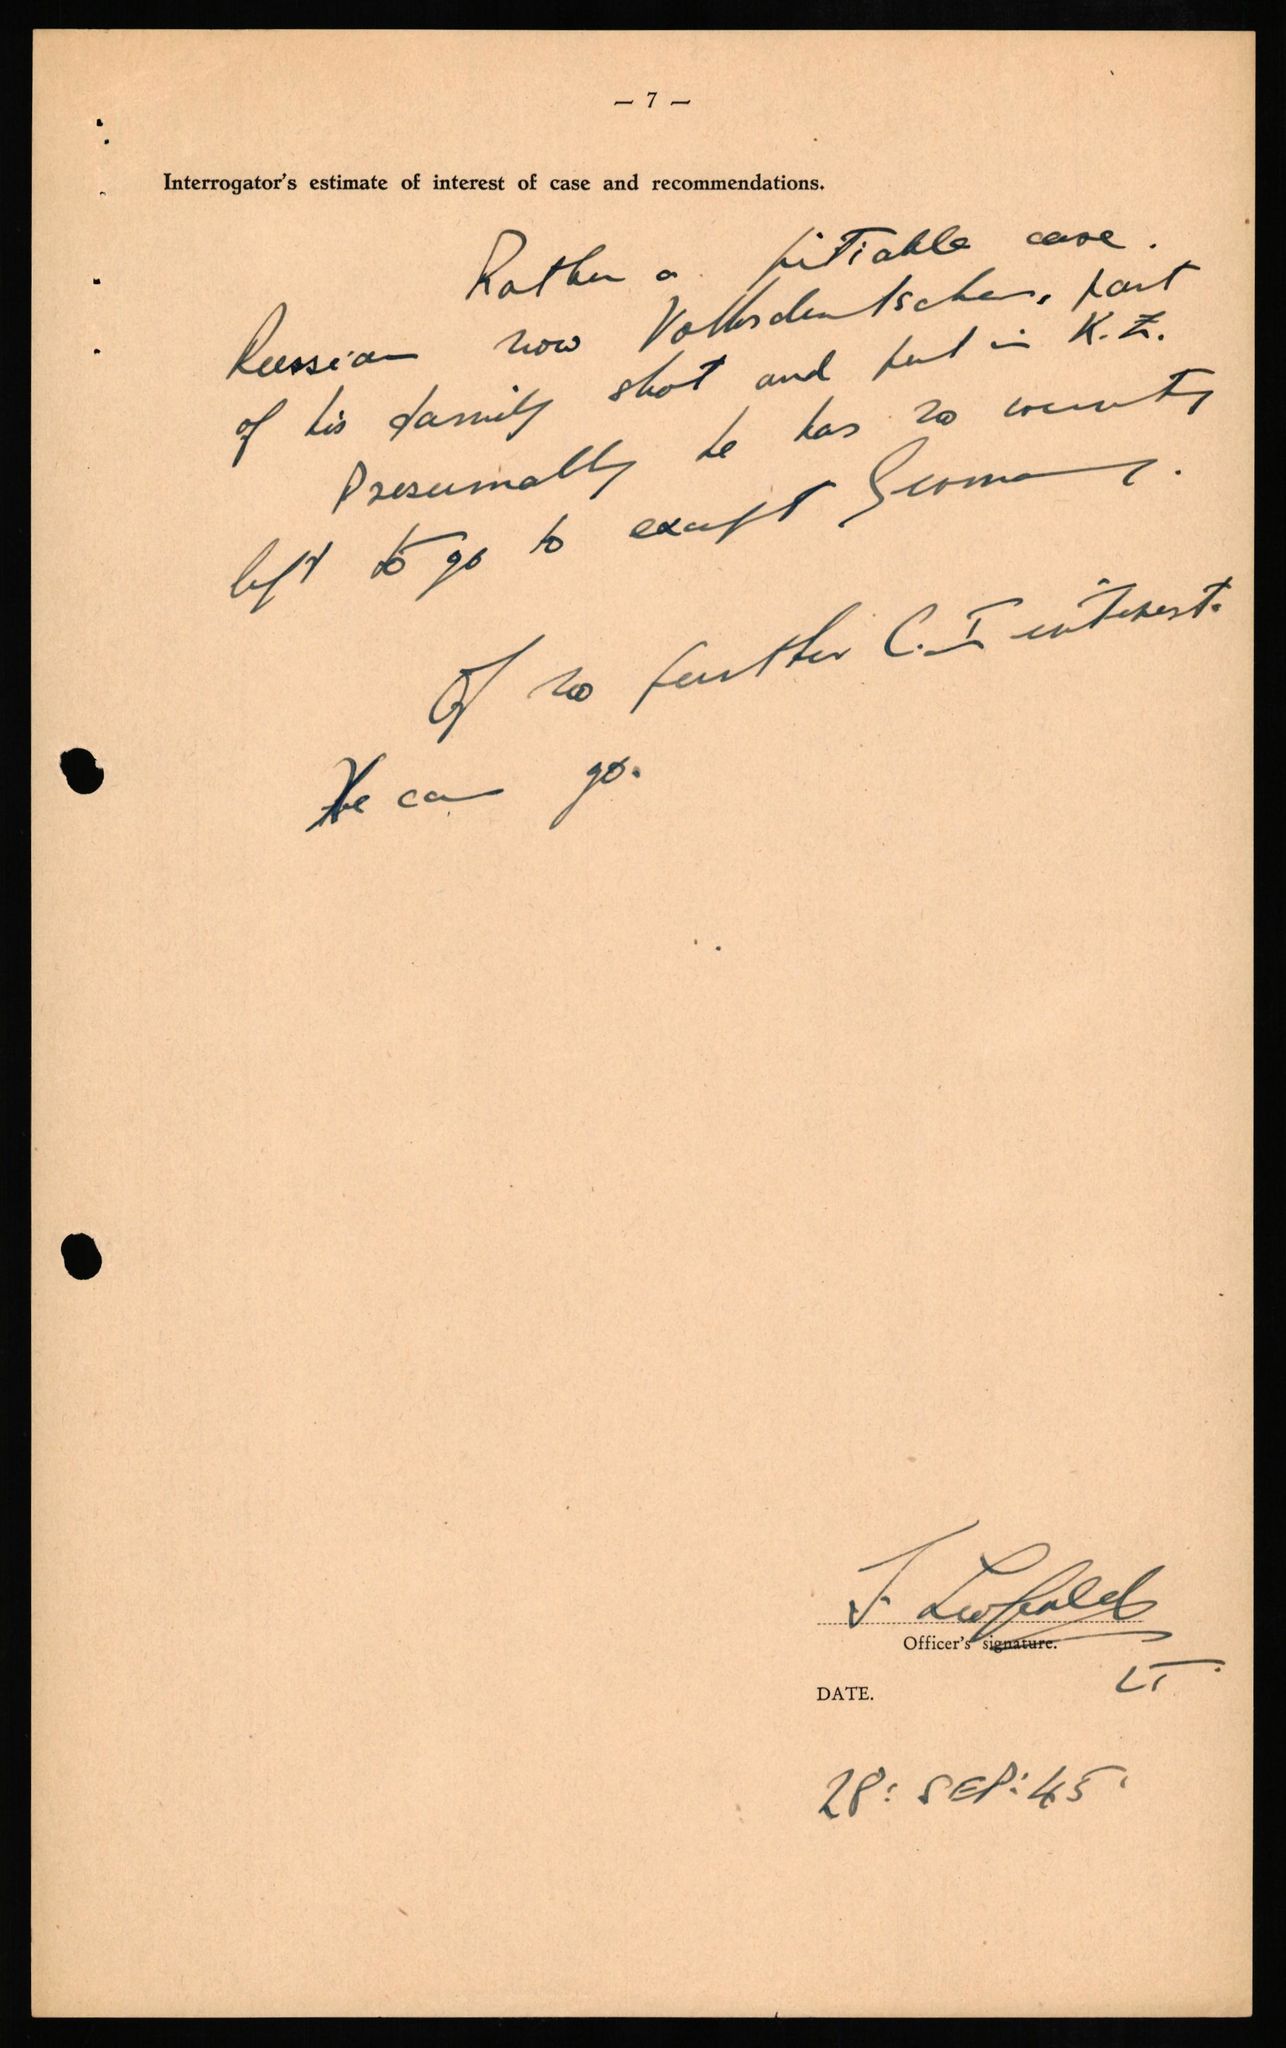 — 7 —
Interrogator's estimate of interest of case and recommendations.
Rather a pitiable case.
Russian now Volksdeutscher, part
of his family shot and put in K.Z.
Presumably he has no country
left to go to except Germany.
Of no further C.I interest.
He can go.
J. Leopold
Officer's signature.
LT.
DATE.
28: SEP: 45.